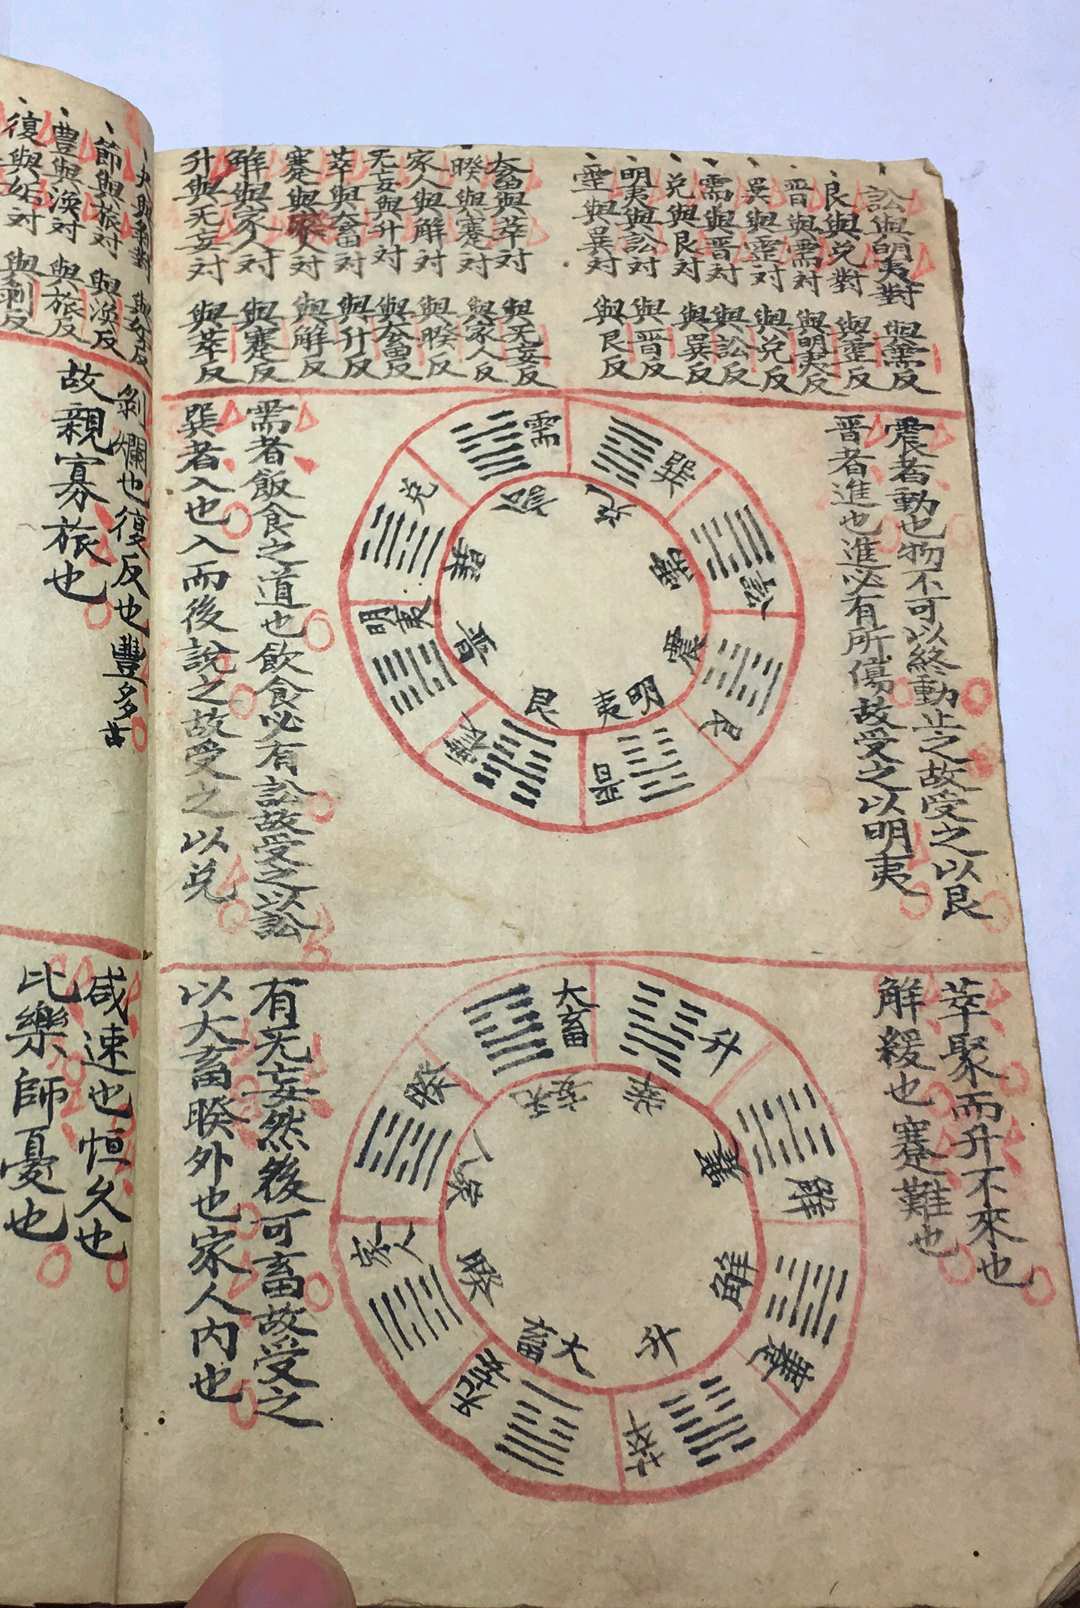 訟與明夷對 與需反
艮與兌對 與震反
晋與需对 與明夷反
巽與震对 與兌反
需與晋对 與訟反
兌與艮对 與巽反
明夷與訟对 與晋反
震與巽对 與艮反
大畜與萃对 與无妄反
睽與蹇对 與家人反
家人與解对 與睽反
无妄與升对 與大畜反
萃與大畜对 與升反
蹇與睽对 與解反
解與家人对 與蹇反
升與无妄对 與萃反
震者動也物不可以終動止之故受之以艮
晋者進也進必有所傷故受之以明夷
需
巽
訟
艮
晋
震
明夷
兌
訟
兌
需
震
明夷
艮
晋
巽
需者飯食之道也飲食必有訟故受之以訟
巽者入也入而後說之故受之以兌
萃聚而升不來也
解緩也蹇難也
大畜
升
解
蹇
萃
无妄
家人
睽
无妄
萃
蹇
解
升
大畜
睽
家人
有无妄然後可畜故受之
以大畜睽外也家人内也
節與旅对 與渙反
豊與渙对 與旅反
復與姤对 與剝反
剝爛也復反也豐多故
故親寡旅也
咸速也恒久也
比樂師憂也